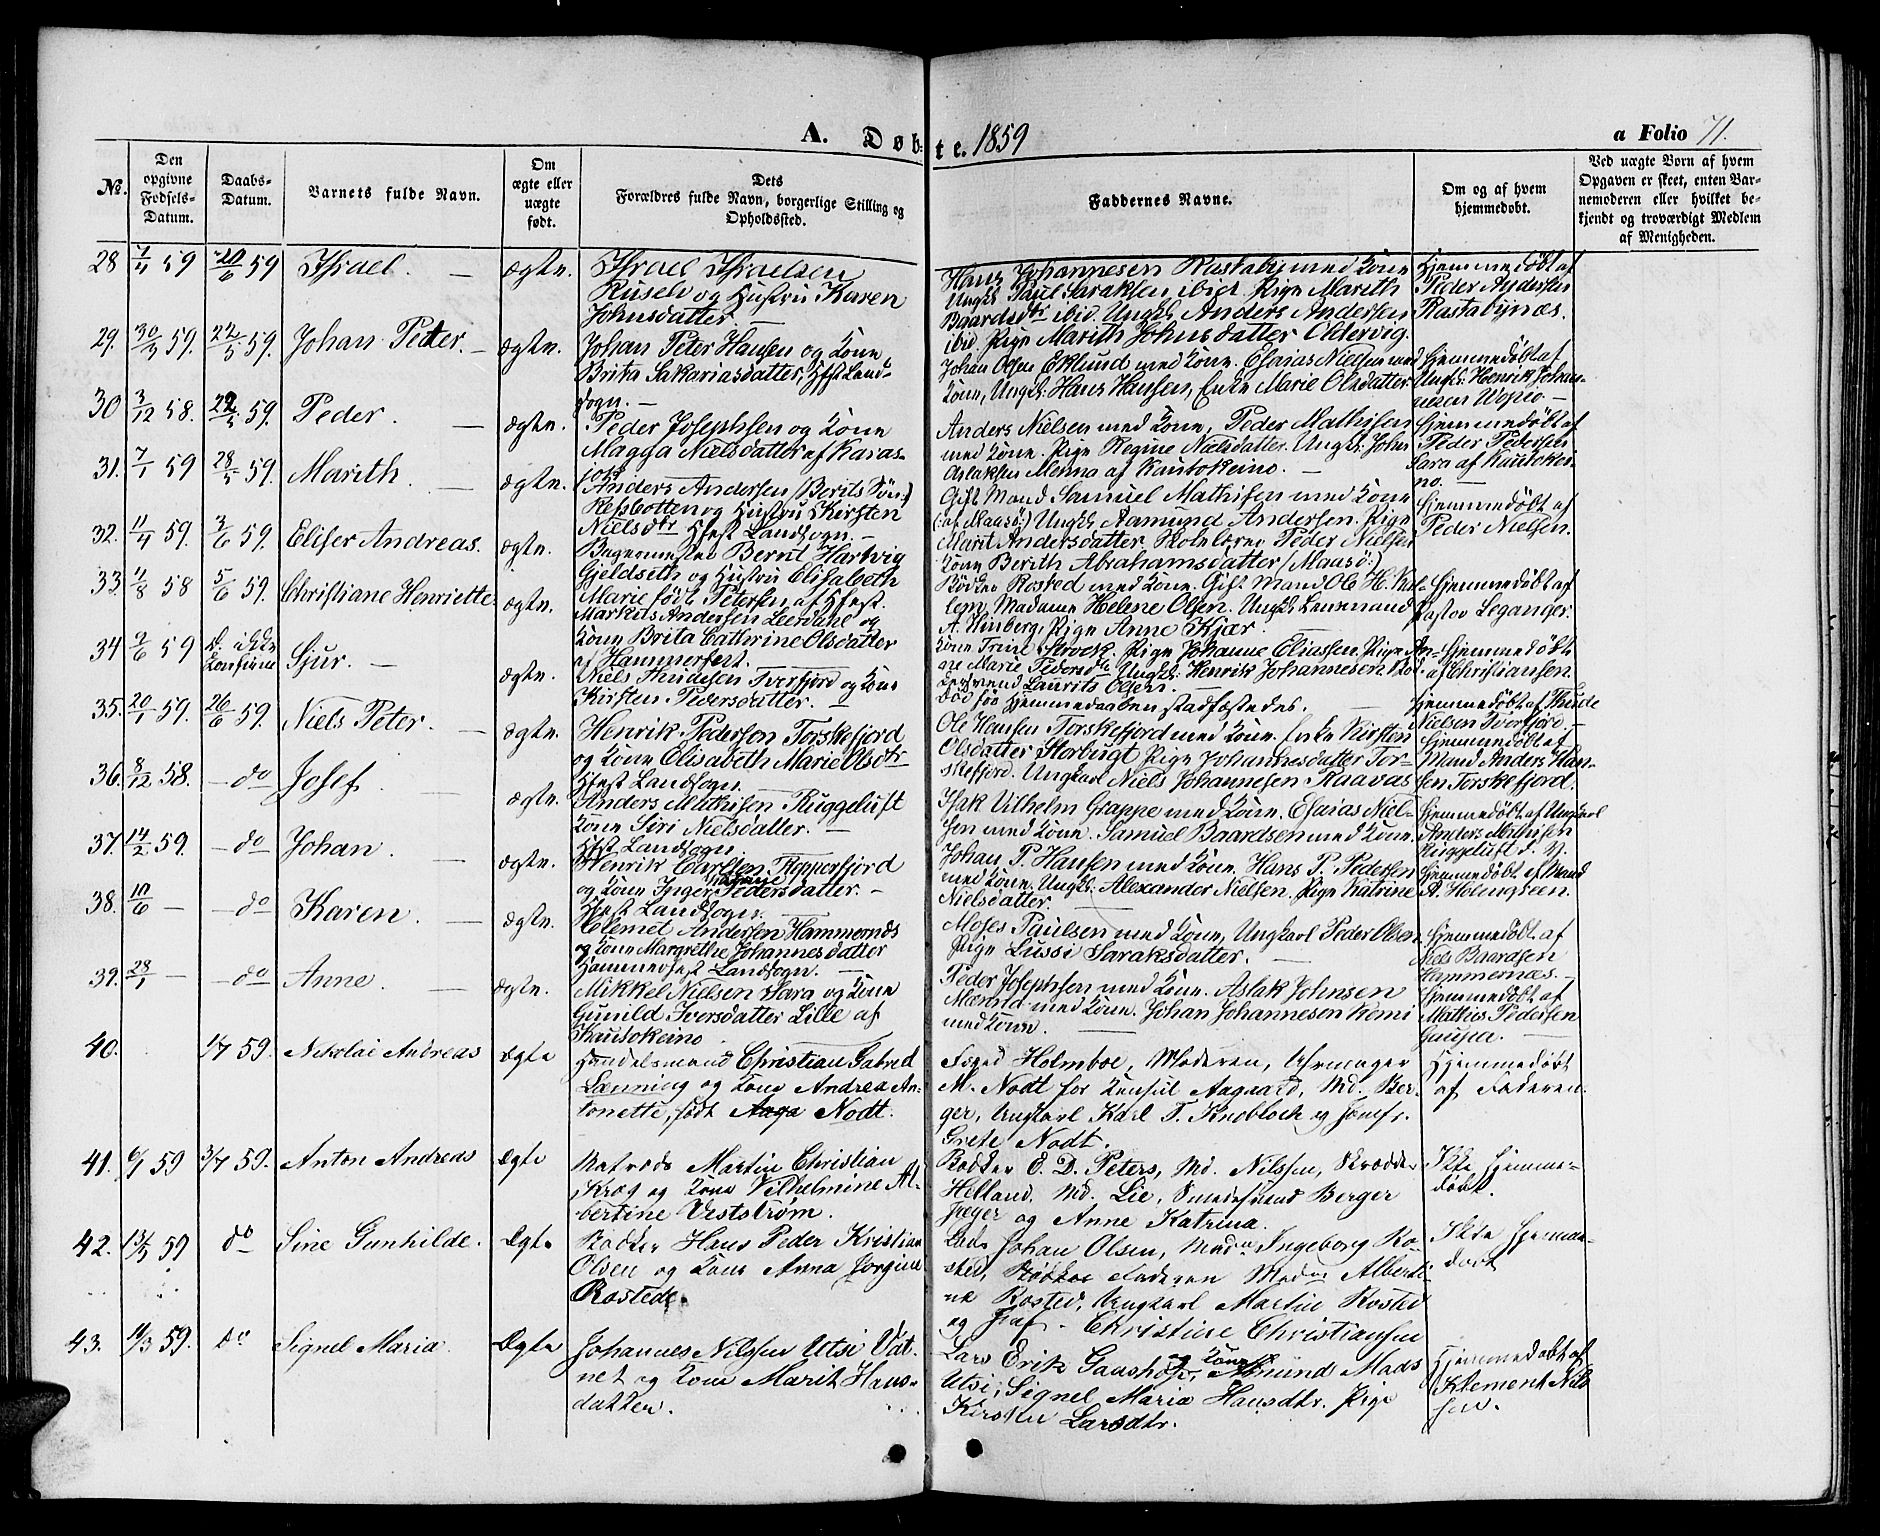 A. Døb-
te. 1859
a Folio 71.
No.
Den opgivne Fødsels-Datum.
Daabs-Datum.
Varnets fulde Navn.
Om ægte eller uægte født.
Dets
Forældres fulde Navn, borgerlige Stilling og
Opholdssted.
Faddernes Navne.
Om og af hvem
hjemmedøbt.
Ved uægte Born af hvem
Opgaven er skeet, enten Bar-
nemoderen eller hvilket be-
kjendt og troværdigt Medlem
af Menigheden.
28 7/4 59 20/6 59 Israel. — ægte.
Israel Israelsen
Russelv og Hustru Karen
Johnsdatter —
Hans Johannesen Rastaby med Kone
Ungk. Paul Saraksen ibid. Pige Marith
Baardsdtr ibid. Ungk. Anders Andersen
ibid. Pige Marith Johnsdatter Oldervig.
Hjemmedøbt af
Peder Andersen
Rastabynæs.
29. 30/3 59. 22/5 59. Johan Peter. — ægte.
Johan Peter Hansen og Kone
Brita Sakariasdatter, Hfst Land-
sogn. —
Johan Olsen Eklund med Kone. Esaias Nielsen med
Kone, Ungk: Hans Hansen, Enke Marie Olsdatter
Hjemmedøbt af
Ungk: Henrik Johan-
nesen Wopio —
30 3/12 58. 22/5 59. Peder. — ægte.
Peder Josephsen og Kone
Magga Nielsdatter af Karas-
jok
Anders Nielsen med Kone, Peder Mathisen
med Kone. Pige Regine Nielsdatter. Ungk: John
Aslaksen Menna af Kautokeino. —
Hjemmedøbt af
Peder Pedersen
Sara af Kautokei-
no. —
31. 7/1 59 28/5 59. Marith. — ægte.
Anders Andersen (Berits Søn:)
Repsbotten og Hustru Kirsten
Nielsdtr Hfest Landsogn. —
Gift Mand Samuel Mathisen med Kone
(:af Maasø:) Ungk: Aamund Andersen. Pige
Marit Andersdatter. Skolelærer Peder Nielsen
Kone Berith Abrahamsdatter (Maasø:)
Hjemmedøbt af
Peder Nielsen.
32. 11/4 59. 3/6 59. Eliser Andreas. ægte.
Bagermester Bernt Hartvig
Gjeldseth og Hustru Elisabeth
Marie født Petersen af Hfest.
Bødker Rosted med Kone. Gift Mand Ole H. Kol-
lem. Madame Helene Olsen. Ungk: Lensmand
A. Winberg, Pige Anne Kjær.
Hjemmedøbt af
Pastor Leganger.
33. 11/8 58 5/6 59. Christiane Henriette ægte.
Markus Andersen Leerdahl og
Kone Brita Cathrine Olsdatter
af Hammerfest.
Kone Trine Strock. Pige Johanne Eliassen. Pige An-
ne Marie Pedersdtr Ungk: Henrik Johannesen. Bød-
kersvend Laurits Olsen. —
Hjemmedøbt
af Christiansen.
34 2/6 59 Sjur. — ægte.
Niels Andersen Tverfjord og Kone
Kirsten Pedersdatter. —
Død før Hjemmedaaben stadfæstedes. —
Hjemmedøbt af
Nielsen Tverfjord —
35. 20/1 59. 26/6 59. Niels Peter. — ægte.
Henrik Pederson Torskefjord
og Kone Elisabeth Marie Olsdtr
Hfest Landsogn. —
Ole Hansen Torskefjord med Kone. Enke Kirsten
Olsdatter Storbugt Pige Johannesdatter Tor-
skefjord. Ungkarl Niels Johannesen Raavas
Hjemmedøbt af
Mand Anders Han-
sen Torskefjord.
36. 8/12 58. — do Josef. — ægte.
Anders Mathisen Ruggeluft
Kone Siri Nielsdatter. —
Hfst Landsogn.
Isak Vilhelm Grappe med Kone. Esaias Niel-
sen med Kone. Samuel Baardsen med Kone.
Hjemmedøbt af Ungkarl
Anders Mathisen
Ruggeluft
37. 14/2 59. — do Johan. — ægte.
Henrik Carlsen. Repperfjord
og Kone Inger Pedersdatter. —
Hfest Landsogn. —
Johan P. Hansen med Kone. Hans P. Pedersen
med Kone. Ungk: Alexander Nielsen. Pige Katrine
Nielsdatter. —
Hjemmedøbt af Mand
A. Holmgreen.
38. 10/6 — — do Karen. — ægte.
Clemet Andersen Hammernæs
og Kone Margrethe Johannesdatter
Hammerfest Landsogn. —
Moses Paulsen med Kone, Ungkarl Peder Olsen
Pige Lussi Saraksdatter. —
Hjemmedøbt af
Niels Baardsen
Hammernæs. —
39. 28/1 — — do Anne. — ægte.
Mikkel Nielsen Sara og Kone
Gunild Iversdatter Lille af
Kautokeino
Peder Josephsen med Kone. Aslak Johnsen
med Kone. Johan Johannesen Kemi
med Kone. —
Hjemmedøbt af
Mathis Pedersen
Gaup. —
40. 1/7 59. Nikolai Andreas Ægte
Handelsmand Christian Gabriel
Lænning og Kone Andrea An-
tonette, født Aaga Nodt.
Foged Holmboe, Moderen,
M. Nodt for Konsul Aagaard, Md. Ber-
ger, Ungkarl Karl T. Knobloch og Jomfr.
Grete Nodt.
Hjemmedøbt
af Faderen.
41. 6/1 59 3/7 59. Anton Andreas Ægte
Matros Martin Christian
Krog og Kone Vilhelmine Al-
bertine Vestrøm.
Bødker E. D. Peters, Md. Nilssen, Skrædder
Helland, Md. Lie, Smedesvend Berger
Jæger og Anne Katrina.
Ikke Hjemme-
døbt.
42. 13/5 59 do Sine Gunhilde. Ægte
Bødker Hans Peder Kristian
Olsen og Kone Anna Jørgine
Rostede.
Lods Johan Olsen, Mada Ingeborg Ro-
sted, Bødker Faderen Mada Alberti-
ne Rosted, Ungkarl Martin Rosted
og Jfr. Christine Christiansen
Ikke Hjemme-
døbt
43. 11/3 59. do Signel Maria Ægte
Johannes Nilssen Utsi Vat-
net og Kone Marit Hans-
datter.
Lars Erik Gaashop, og Kone Amund Mads
Utsi, Signel Maria Hansdtr. Pige
Kirsten Larsdtr.
Hjemmedøbt af
Klement Nils-
sen.